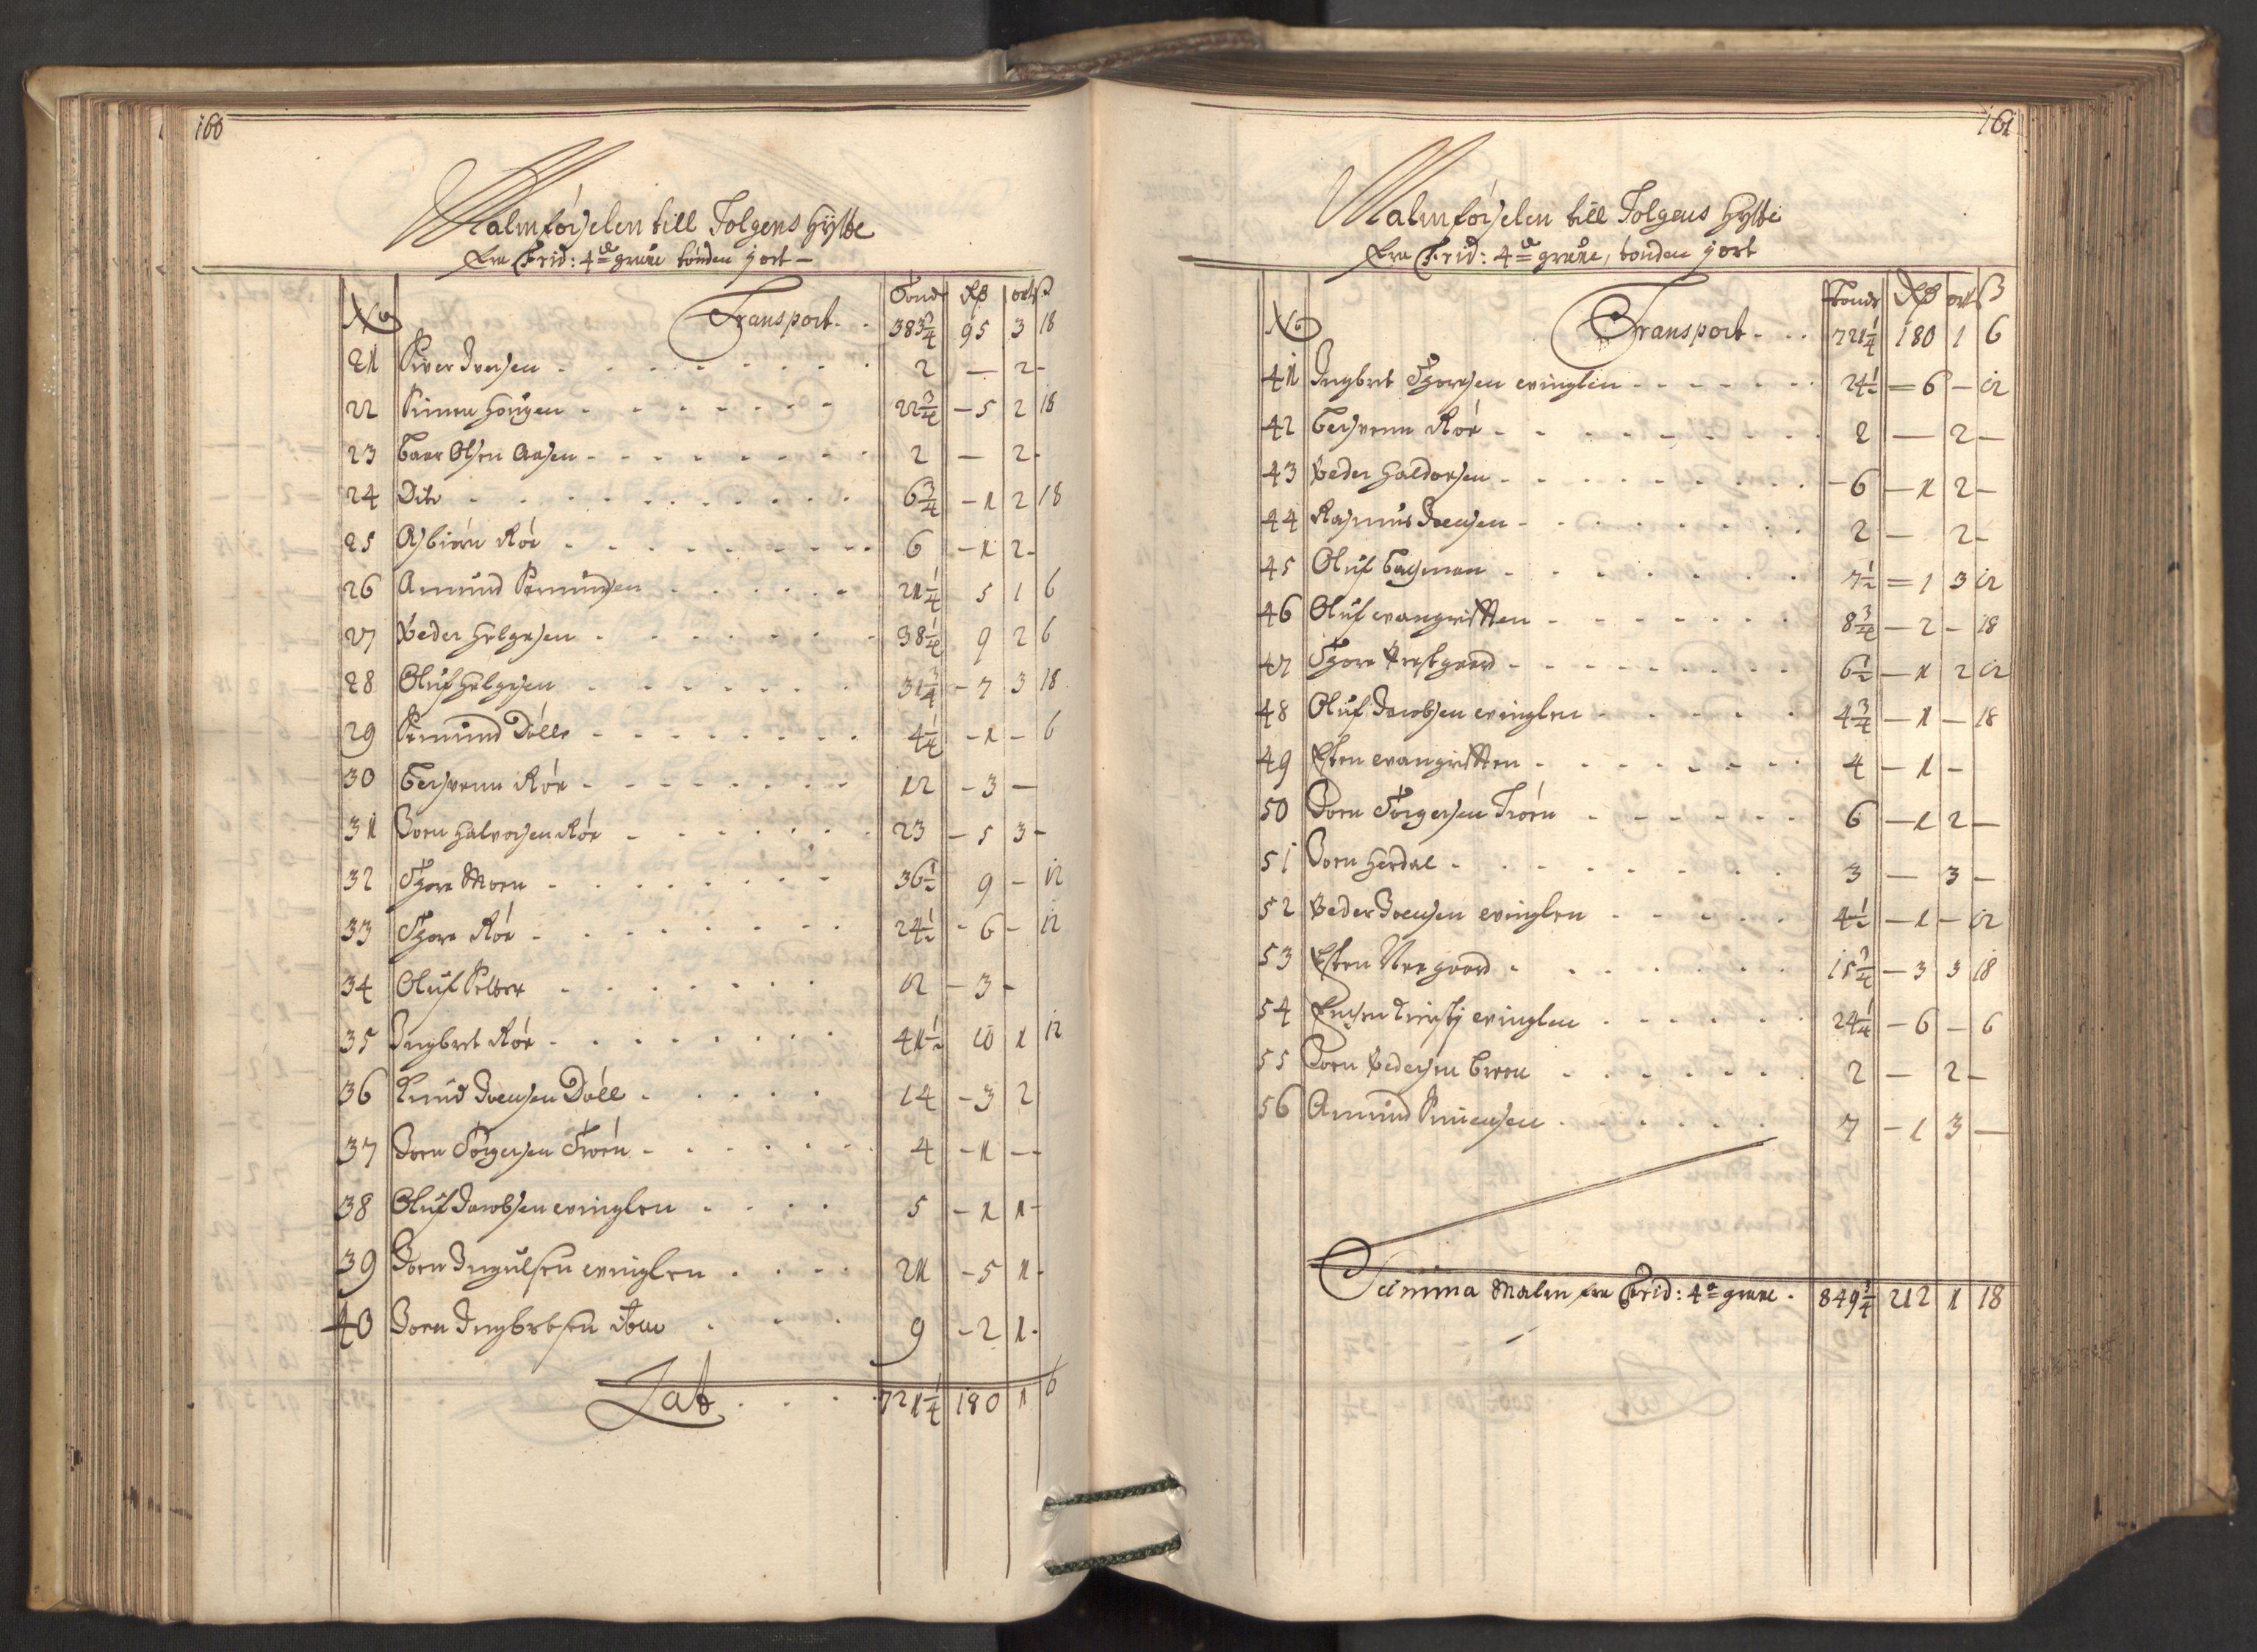 160
Malmførselen till Tolgens Hytte
fra Frid: 4de grube tønden 1 ort —
No Transport . . Tønd 383 3/4 Rß 95 ort 3 ß 18
21 Siver Iversen . . . 2 — 2 -
22 Simen Hougen . . . 22 3/4 - 5 2 18
23 Baar Olsen Aasen . . . 2 — 2 -
24 Dito . . . 6 3/4 - 1 2 18
25 Asbiørn Røe . . . 6 - 1 2 -
26 Amund Semundsen . . . 21 1/4 5 1 6
27 Peder Helgesen . . . 38 1/4 9 2 6
28 Oluf Helgesen . . . 31 3/4 - 7 3 18
29 Semund Døllr . . . 4 1/4 - 1 - 6
30 Bersvenn Røe . . . 12 - 3 —
31 Joen Halvorsen Røe . . . 23 - 5 3 -
32 Thore Moen . . . 36 1/2 9 - 12
33 Thore Røe . . . 24 1/2 - 6 - 12
34 Oluf . . . 12 - 3 -
35 Ingbret Røe . . . 41 1/2 10 1 12
36 Knud Joensen Døll . . . 14 - 3 2
37 Joen Tørgersen Trøen . . . 4 - 1 --
38 Oluf Jacobsen evinglen . . . 5 - 1 1 -
39 Joen Ingulsen evinglen . . . 21 - 5 1 -
40 Joen Ingbretsen . . . 9 - 2 1 -
Lat . . . 721 1/4 180 1 6
161
Malmførselen till Tolgens Hytte
fra Frid: 4de grube, tønden 1 ort
No Transport . . . Tønde 721 1/4 Rß 180 ort 1 ß 6
41 Ingbret Thoresen evinglen . . . 24 1/2 = 6 - 12
42 Bersvenn Røe . . . 2 — 2 —
43 Peder Haldorsen . . . - 6 — 1 2 —
44 Rasmus Joensen . . . 2 — 2 -
45 Oluf Bagman . . . 7 1/2 = 1 3 12
46 Oluf evangrifften . . . 8 3/4 — 2 - 18
47 Thore Prestgaard . . . 6 1/2 — 1 2 12
48 Oluf Jacobsen evinglen . . . 4 3/4 — 1 — 18
49 Esten evangrifften . . . 4 — 1 -
50 Joen Tørgersen Trøen . . . 6 — 1 2 —
51 Joen Herdal . . . 3 — 3 —
52 Peder Joensen evinglen . . . 4 1/2 — 1 — 12
53 Esten Neegaard . . . 15 3/4 — 3 3 18
54 evinglen . . . 24 1/4 — 6 — 6
55 Joen Pedersen Breen . . . 2 — 2 —
56 Amund Simensen . . . 7 — 1 3 —
Summa Malm fra Frid: 4de grube . 849 3/4 212 1 18